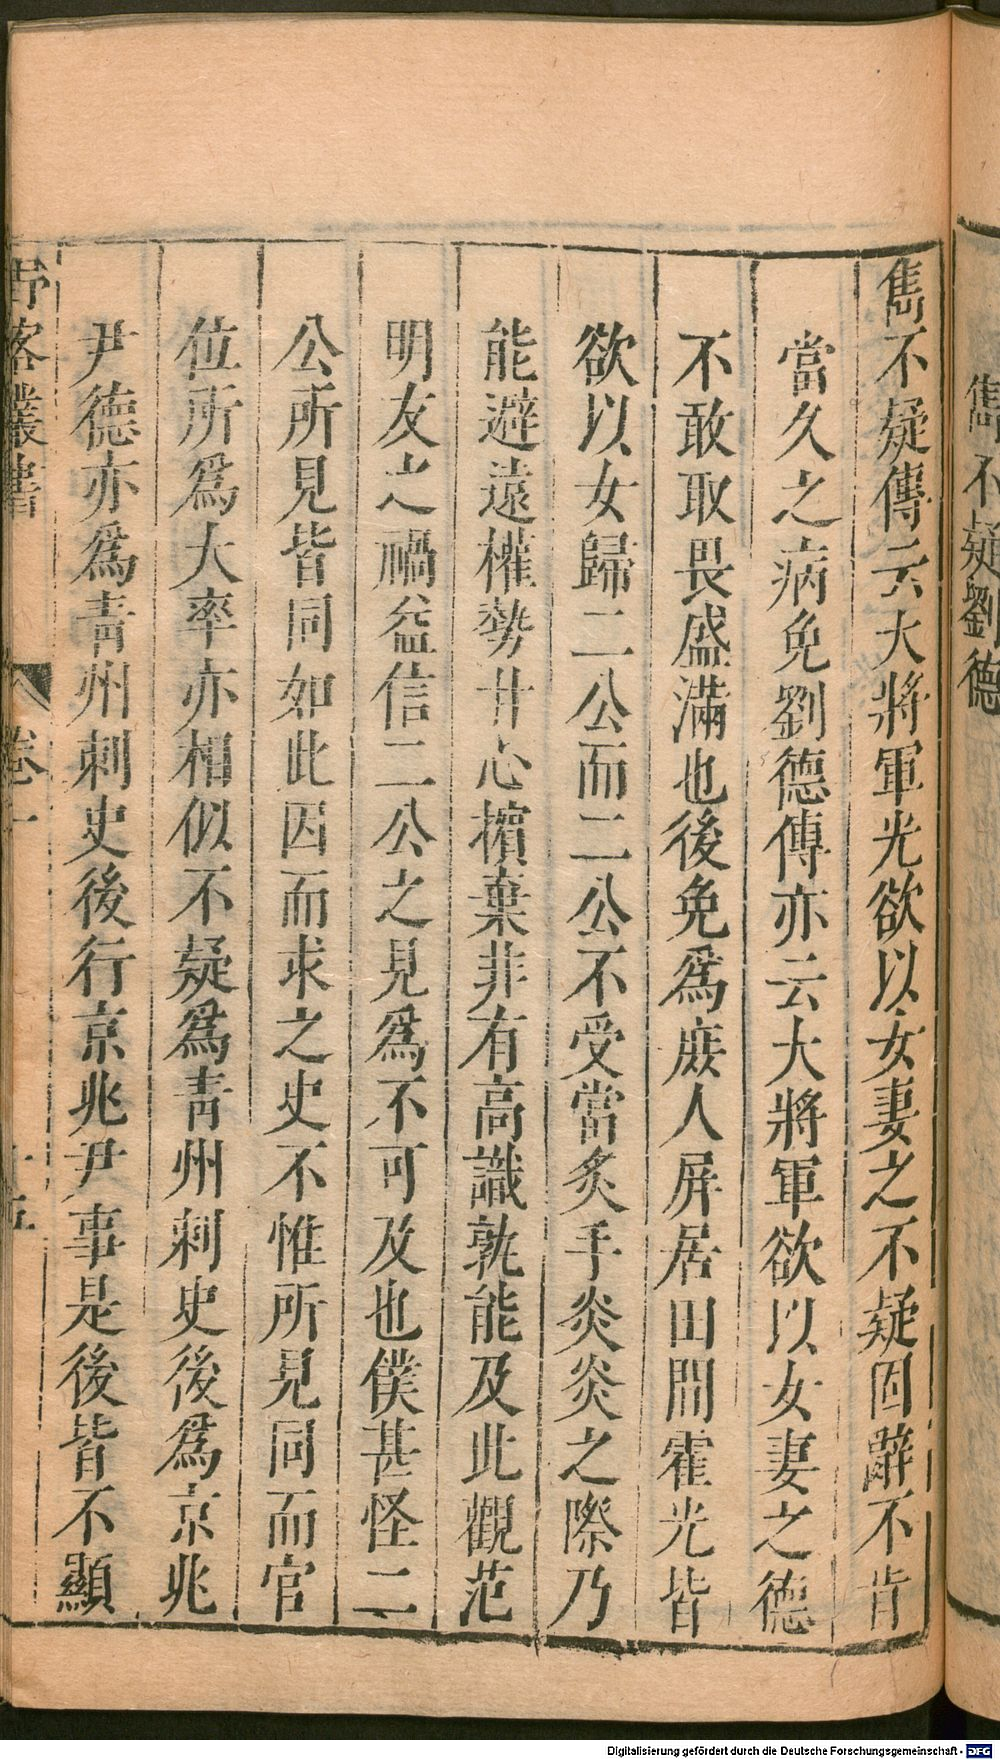 雋不疑劉德
雋不疑傳云大將軍光欲以女妻之不疑固辭不肯
當久之病免劉德傳亦云大將軍欲以女妻之德
不敢取畏盛滿也後免爲庶人屏居田間霍光皆
欲以女歸二公而二公不受當炙手炎炎之際乃
能避遠權勢甘心擯棄非有高識孰能及此觀范
明友之禍益信二公之見爲不可及也僕甚怪二
公所見皆同如此因而求之史不惟所見同而官
位所爲大率亦相似不疑爲青州刺史後爲京兆
尹德亦爲青州刺史後行京兆尹事是後皆不顯
野客叢書 卷一
Digitalisierung gefördert durch die Deutsche Forschungsgemeinschaft - DFG